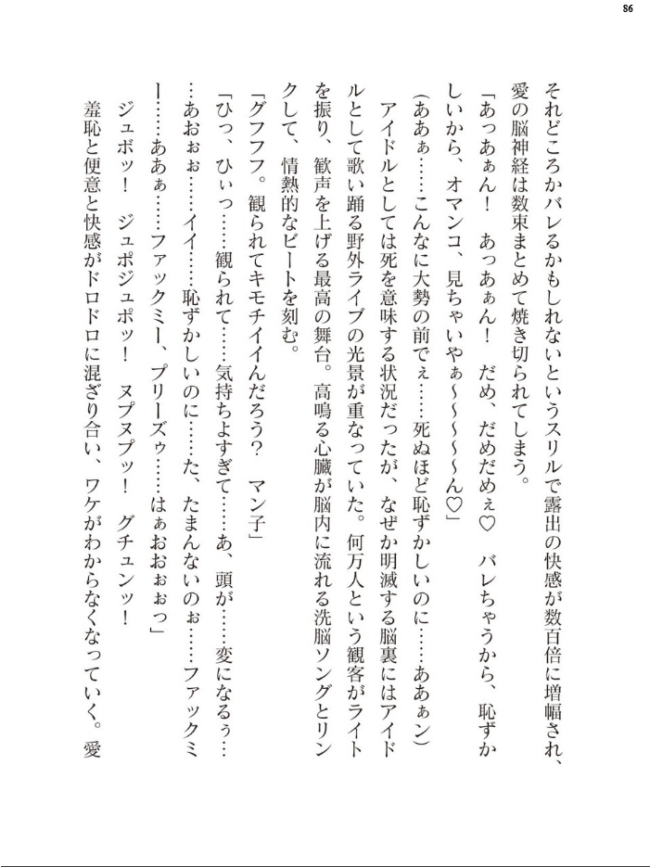 86
それどころかバレるかもしれないというスリルで露出の快感が数百倍に増幅され、
愛の脳神経は数束まとめて焼き切られてしまう。
「あっあぁん！　あっあぁん！　だめ、だめだめぇ♡　バレちゃうから、恥ずか
しいから、オマンコ、見ちゃいやぁ～～～～～ん♡」
（ああぁ……こんなに大勢の前でぇ……死ぬほど恥ずかしいのに……ああぁン）
アイドルとしては死を意味する状況だったが、なぜか明滅する脳裏にはアイド
ルとして歌い踊る野外ライブの光景が重なっていた。何万人という観客がライト
を振り、歓声を上げる最高の舞台。高鳴る心臓が脳内に流れる洗脳ソングとリン
クして、情熱的なビートを刻む。
「グフフフ。観られてキモチイイんだろう？　マン子」
「ひっ、ひぃっ……観られて……気持ちよすぎて……あ、頭が……変になるぅ…
…あおぉぉ……イイ……恥ずかしいのに……た、たまんないのぉ……ファックミ
ー……ああぁ……ファックミー、プリーズゥ……はぁおおぉぉっ」
ジュボッ！　ジュポジュポッ！　ヌプヌプッ！　グチュンッ！
羞恥と便意と快感がドロドロに混ざり合い、ワケがわからなくなっていく。愛